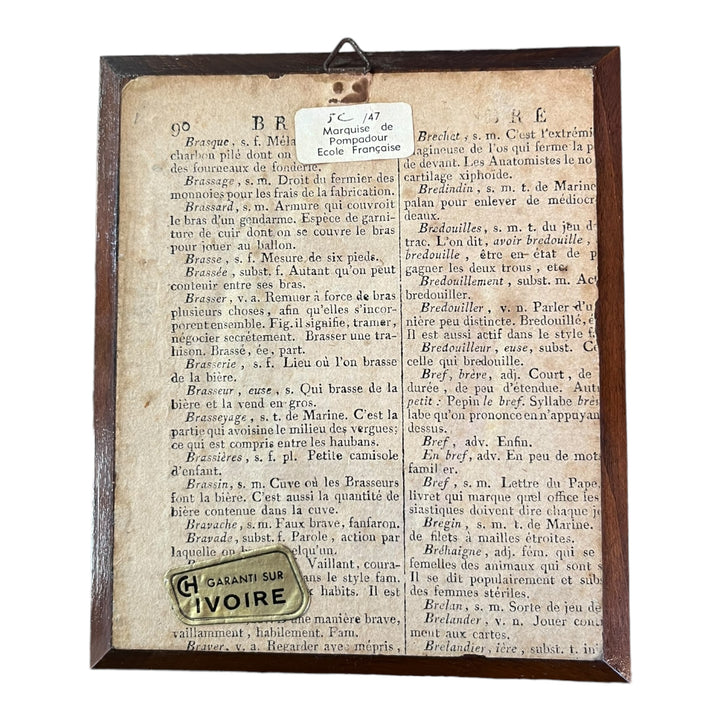 5C /47
Marquise de
Pompadour
Ecole Française
90 BR RE
Brasque, s. f. Méla
charbon pilé dont on
des fourneaux de fonderie.
Brassage, s. m. Droit du fermier des
monnoies pour les frais de la fabrication.
Brassard, s. m. Armure qui couvroit
le bras d'un gendarme. Espèce de garni-
ture de cuir dont on se couvre le bras
pour jouer au ballon.
Brasse, s. f. Mesure de six pieds.
Brassée, subst. f. Autant qu'on peut
contenir entre ses bras.
Brasser, v. a. Remuer à force de bras
plusieurs choses, afin qu'elles s'incor-
porent ensemble. Fig. il signifie, tramer,
négocier secrétement. Brasser une tra-
hison. Brassé, ée, part.
Brasserie, s. f. Lieu où l'on brasse
de la bière.
Brasseur, euse, s. Qui brasse de la
bière et la vend en gros.
Brasseyage, s. t. de Marine. C'est la
partie qui avoisine le milieu des vergues;
ce qui est compris entre les haubans.
Brassières, s. f. pl. Petite camisole
d'enfant.
Brassin, s. m. Cuve où les Brasseurs
font la bière. C'est aussi la quantité de
bière contenue dans la cuve.
Bravache, s. m. Faux brave, fanfaron.
Bravade, subst. f. Parole, action par
laquelle on qu'un.
Vaillant, coura-
ans le style fam.
habits. Il est
ne manière brave,
vaillamment, habilement. Fam.
Braver, v. a. Regarder avec mépris,
Brechet, s. m. C'est l'extrémi
lagineuse de l'os qui ferme la p
de devant. Les Anatomistes le no
cartilage xiphoïde.
Bredindin, s. m. t. de Marine
palan pour enlever de médiocr
deaux.
Bredouilles, s. m. t. du jeu d
trac. L'on dit, avoir bredouille,
bredouille, être en état de p
gagner les deux trous, etc.
Bredouillement, subst. m. Ac
bredouiller.
Bredouiller, v. n. Parler d'u
nière peu distincte. Bredouillé, é
Il est aussi actif dans le style f
Bredouilleur, euse, subst. Ce
celle qui bredouille.
Bref, brève, adj. Court, de
durée, de peu d'étendue. Aut
petit: Pepin le bref. Syllabe brè
labe qu'on prononce en n'appuyan
dessus.
Bref, adv. Enfin.
En bref, adv. En peu de mots
familier.
Bref, s. m. Lettre du Pape.
livret qui marque quel office les
siastiques doivent dire chaque jo
Bregin, s. m. t. de Marine.
de filets à mailles étroites.
Bréhaigne, adj. fém. qui se
femelles des animaux qui sont s
Il se dit populairement et sub
des femmes stériles.
Brelan, s. m. Sorte de jeu de
Brelander, v. n. Jouer conti
ment aux cartes.
Brelandier, ière, subst. t. in
CH GARANTI SUR
IVOIRE